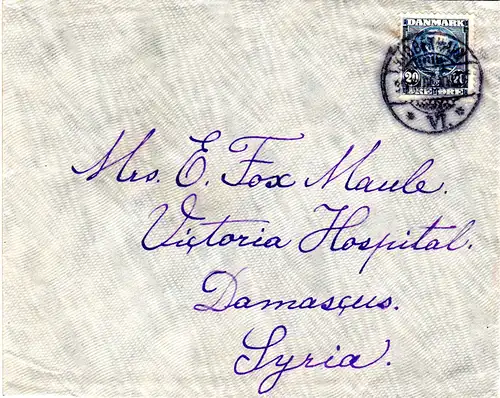 DANMARK
20 20
VI.
Mrs. E. Fox Maule.
Victoria Hospital.
Damascus.
Syria.